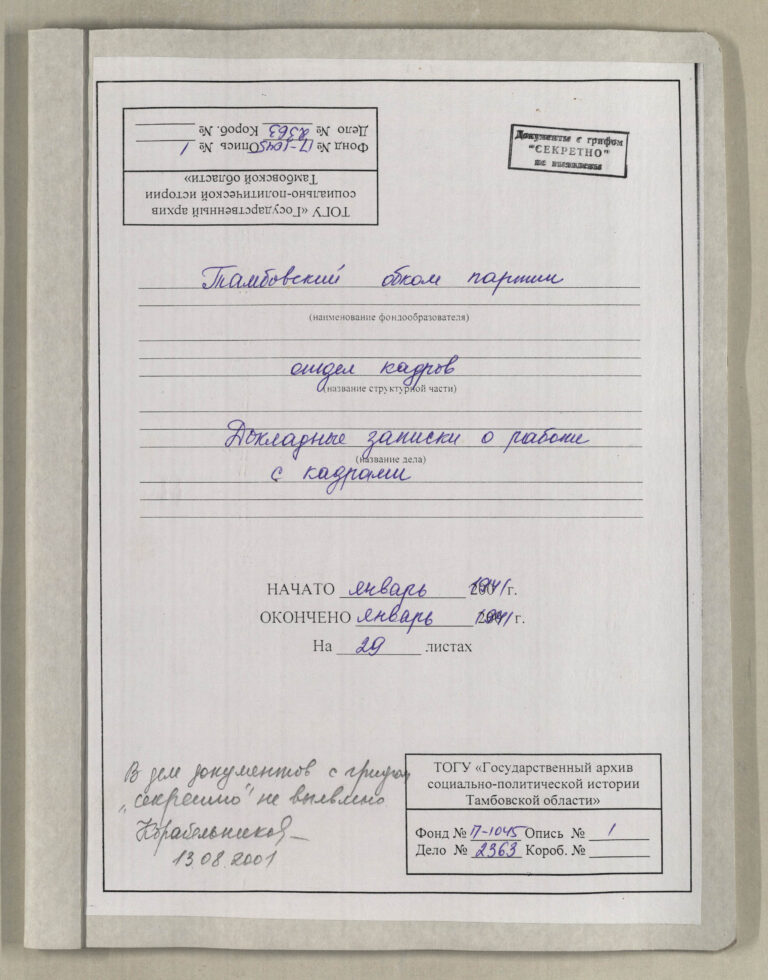 ТОГУ «Государственный архив
социально-политической истории
Тамбовской области»
Фонд № П-1045 Опись № 1
Дело № 2363 Короб. №
Документы с грифом
"СЕКРЕТНО"
не выявлены
Тамбовский обком партии
(наименование фондообразователя)
отдел кадров
(название структурной части)
Докладные записки о работе
(название дела)
с кадрами
НАЧАТО январь 1941 г.
ОКОНЧЕНО январь 1941 г.
На 29 листах
В деле документов с грифом
„секретно" не выявлено
13.08.2001
ТОГУ «Государственный архив
социально-политической истории
Тамбовской области»
Фонд № П-1045 Опись № 1
Дело № 2363 Короб. №